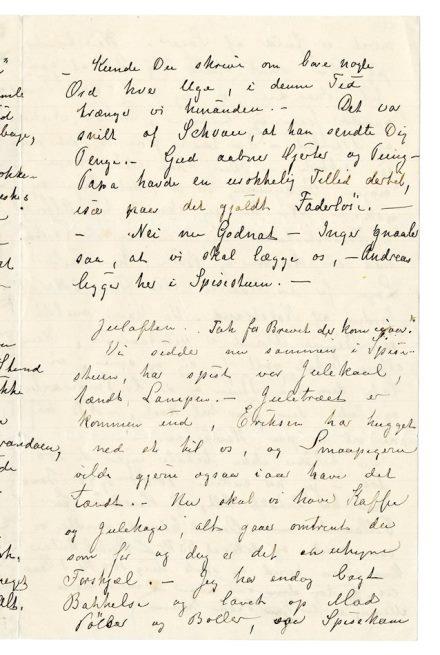 – Kunde Du skrive om bare nogle
Ord hver Uge, i denne Tid
trænge vi hinanden. – Det var
snilt af Schou, at han sendte Dig
Penge. – Gud aabner Hjerter og Pung –
Papa havde en urokkelig Tillid dertil,
især naar det gjaldt Faderløse. –
– Nei nu Godnat – Inger gnaaler
saa, at vi skal lægge os, – Andreas
ligger her i Spisestuen. –
Juleaften. Tak for Brevet der kom igaar.
Vi sidder nu sammen i Spise-
stuen, har spist vor Julekaal,
tændt Lampen. – Juletræet er
kommen ind, Eriksen har hugget
ned et til os, og Smaapigerne
vilde gjerne ogsaa iaar have det
tændt. – Nu skal vi have Kaffe
og Julekage, alt gaar omtrent der
som før og dog er det en uhyre
Forskjel. – Jeg har endog bagt
Bakkelse og lavet op Mad
Pölser og Boller, Spisekam